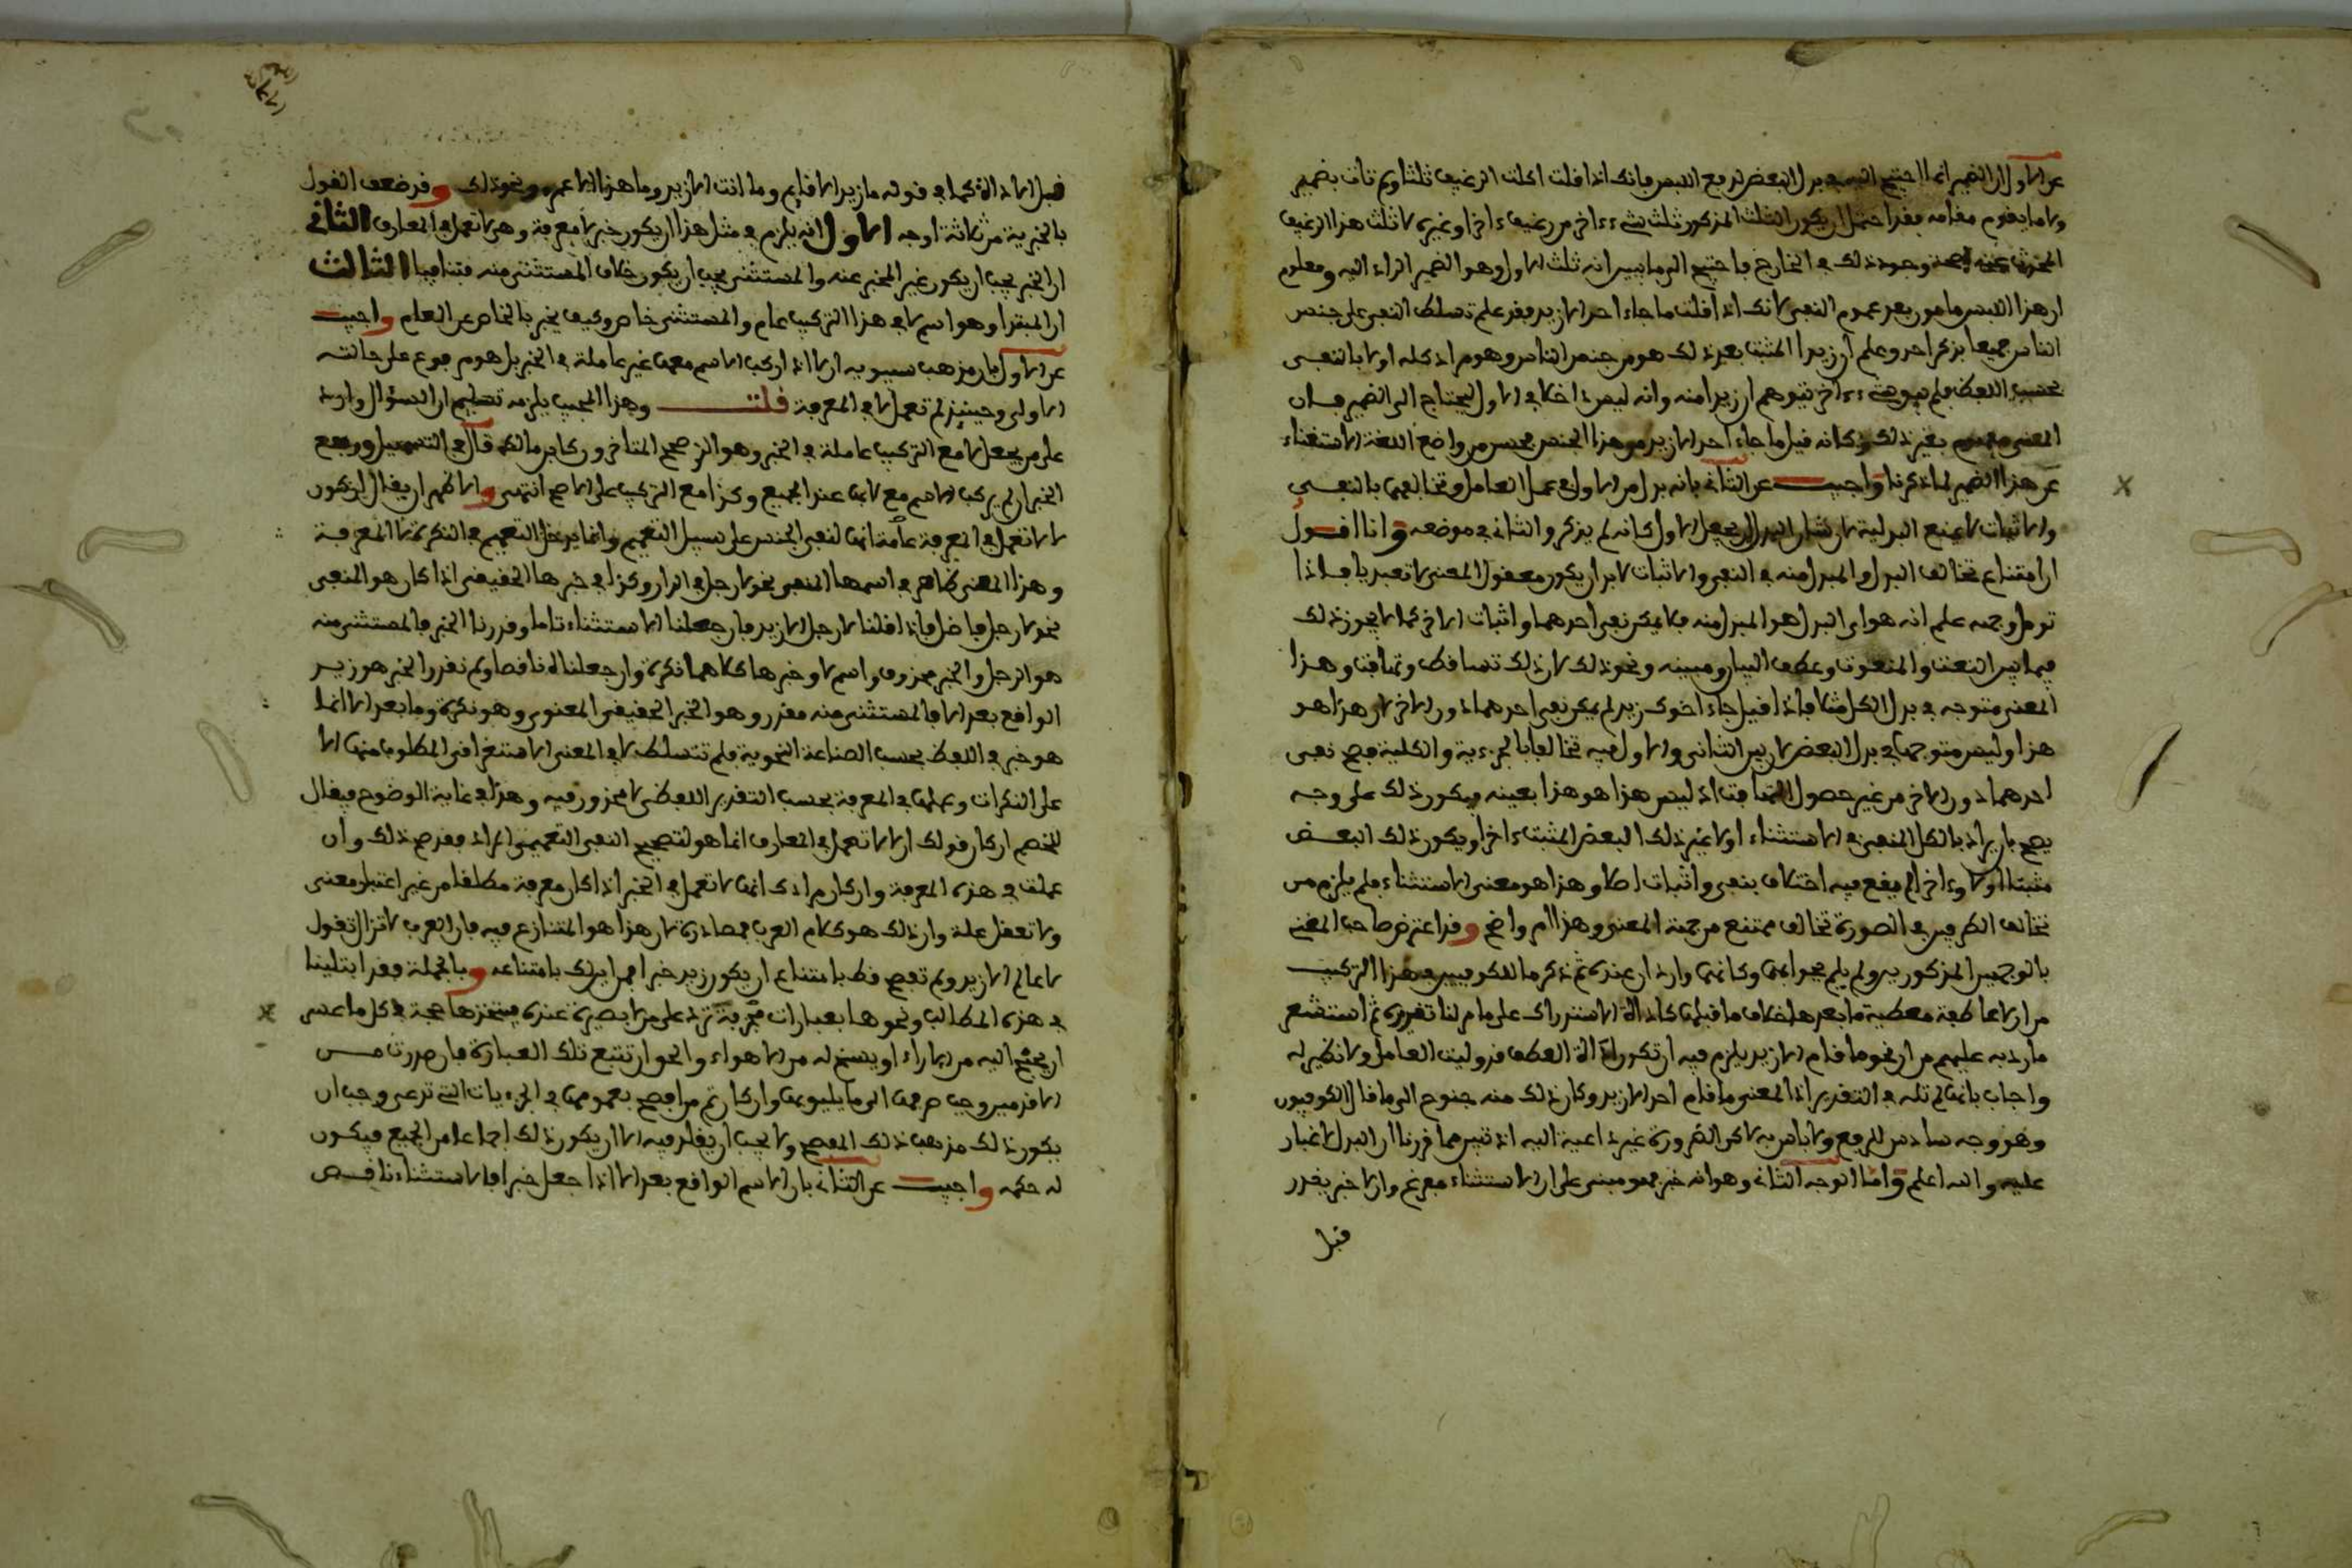 عن الاول ان الضمير انما احتيج اليه في بدل البعض لرفع اللبس فانك اذا قلت اكلت الرغيف ثلثا ولم تات بضمير
ولا ما يقوم مقامه فقد احتمل ان يكون الثلث المذكور ثلث شيء ءاخر من رغيف ءاخر او غيره لا ثلث هذا الرغيف
المحدث عنه وجود ذلك في الخارج فاحتيج الى ما يبين انه ثلث الاول وهو الضمير الراد اليه ومعلوم
ان هذا اللبس مامون بعد عموم النفي لانك اذا قلت ما جاء احد الا زيد فقد علم تسلط النفي على جنس
الناس جميعا بذكر احد وعلم ان زيدا المثبت بعد ذلك هو من جنس الناس وهو مراد كله اولا بالنفي
بحسب اللفظ فلم يبق شيء ءاخر يتوهم ان زيدا منه وانه ليس داخلا في الاول ليحتاج الى الضمير فان
المعنى بغير ذلك فكانه قيل ما جاء احد الا زيد من هذا الجنس فحسن من واضع اللغة الاستغناء
عن هذا الضمير لما ذكرنا واجيب عن الثاني بانه بدل من الاول في عمل العامل وتخالفهما بالنفي
والاثبات لا يمنع البدلية لان شان البدل ان يجعل الاول كانه لم يذكر والثاني في موضعه وانا اقول
ان امتناع تخالف البدل والمبدل منه في النفي والاثبات لا بد ان يكون معقول المعنى لا تعبديا فاذا
تومل وجهه علم انه هو ان البدل هو المبدل منه فلا يمكن نفي احدهما واثبات الاخر كما لا يجوز ذلك
فيما بين النعت والمنعوت وعطف البيان ومبينه ونحو ذلك لان ذلك تساقط وتهافت وهذا
المعنى متوجه في بدل الكل مثلا فاذا قيل جاء اخوك زيد لم يمكن نفي احدهما دون الاخر لان هذا هو
هذا وليس متوجها في بدل البعض لان بين الثاني والاول فيه تخالفا بالجزءية والكلية فصح نفي
احدهما دون الاخر من غير حصول التهافت اذ ليس هذا هو هذا بعينه فيكون ذلك على وجه
يصح بان يراد بالكل المنفي في الاستثناء اولا غير ذلك البعض المثبت ءاخرا ويكون ذلك البعض
مثبتا اولا وءاخرا لم يقع فيه اختلاف بنفي واثبات اصلا وهذا هو معنى الاستثناء فلم يلزم من
تخالف الطرفين في الصورة تخالف ممتنع من جهة المعنى وهذا امر واضح وقد اعترض صاحب المغني
بالوجهين المذكورين ولم يلم بجوابهما وكانهما واردان عنده ثم ذكر ما للكوفيين في هذا التركيب
من ان الا عاطفة معطية ما بعدها خلاف ما قبلها كاداة الاستدراك على ما مر لنا تقريره ثم استشعر
ما رد به عليهم من ان نحو ما قام الا زيد يلزم فيه ان تكون اداة العطف قد وليت العامل ولا نظير له
واجاب بانها لم تله في التقدير اذ المعنى ما قام احد الا زيد وكان ذلك منه جنوح الى ما قال الكوفيون
وهو وجه سادس للرفع ولا باس به لاكن الضرورة غير داعية اليه اذ تبين مما قررنا ان البدل لا غبار
عليه والله اعلم واما الوجه الثاني وهو انه خبر فهو مبني على ان الاستثناء مفرغ وان لا خبر يقدر
قبل
قبل الاداة كما في قوله ما زيد الا قايم وما انت الا زيد وما هذا الا عمرو ونحو ذلك وقد ضعف القول
بالخبرية من ثلاثة اوجه الاول انه يلزم في مثل هذا ان يكون خبر لا معرفة وهي لا تعمل في المعارف الثاني
ان الخبر يجب ان يكون غير المخبر عنه والمستثنى يجب ان يكون خلاف المستثنى منه فتنافيا الثالث
ان المبتدا وهو اسم لا في هذا التركيب عام والمستثنى خاص وكيف يخبر بالخاص عن العام واجيب
عن الاول بان مذهب سيبويه ان لا اذا ركب الاسم معها غير عاملة في الخبر بل هو مرفوع على حالته
الاولى وحينيذ لم تعمل لا في المعرفة قلت وهذا المجيب يلزمه تسليم ان السؤال وارد
على من يجعل لا مع التركيب عاملة في الخبر وهو الذي صححه المتاخرون كابن مالك قال في التسهيل ورفع
الخبر ان لم يركب الاسم مع لا بها عند الجميع وكذا مع التركيب على الاصح انتهى والاظهر ان يقال ان كون
لا لا تعمل في المعرفة عامة انها لنفي الجنس على سبيل التعميم وانما يدخل التعميم في النكرة لا المعرفة
وهذا المعنى ظاهر في اسمها المنفي نحو لا رجل في الدار وكذا في خبرها الحقيقي اذا كان هو المنفي
نحو لا رجل فاضل فاذا قلنا لا رجل الا زيد فان جعلنا الاستثناء تاما وقدرنا الخبر فالمستثنى منه
هو الرجل والخبر محذوف واسم لا وخبرها كلاهما نكرة وان جعلناه ناقصا ولم نقدر الخبر هو زيد
الواقع بعد الا فالمستثنى منه مقدر وهو الخبر الحقيقي المعنوي وهو نكرة وما بعد الا انما
هو خبر في اللفظ بحسب الصناعة النحوية فلم تتسلط لا في المعنى الاستغراقي المطلوب منها الا
على النكرات وعملها في المعرفة بحسب التقدير اللفظي لا محذور فيه وهذا في غاية الوضوح فيقال
للخصم ان كان قولك ان لا لا تعمل في المعارف انما هو لتصحيح النفي التعميمي المراد فقد صح ذلك وان
عملت في هذه المعرفة وان كان مرادك انها لا تعمل في الخبر اذا كان معرفة مطلقا من غير اعتبار معنى
ولا تعقل علة وان ذلك هو كلام العرب فمصادرة لان هذا هو المتنازع فيه فان العرب لا تزال تقول
لا عالم الا زيد ولم تفصح قط بامتناع ان يكون زيد خبرا فمن اين لك بامتناعه وبالجملة فقد ابتلينا
في هذه المطالب ونحوها بعبارات مجربة ترد على من لا بصيرة عنده فيتخذها حجة في كل ما عسى
ان يحتج اليه من الاراء او يسنح له من الاهواء والحق ان تتبع تلك العبارة فان صدرت من
الاقدمين وجب صرفها الى ما يليق بها وان كان ثم من افصح بعمومها في الجزءيات التي تدعي وجب ان
يكون ذلك مذهب ذلك المفصح ولا يجب ان يقلد فيه الا ان يكون ذلك اجماعا من الجميع فيكون
له حكمه واجيب عن الثاني بان الاسم الواقع بعد الا اذا جعل خبرا فالاستثناء ناقص